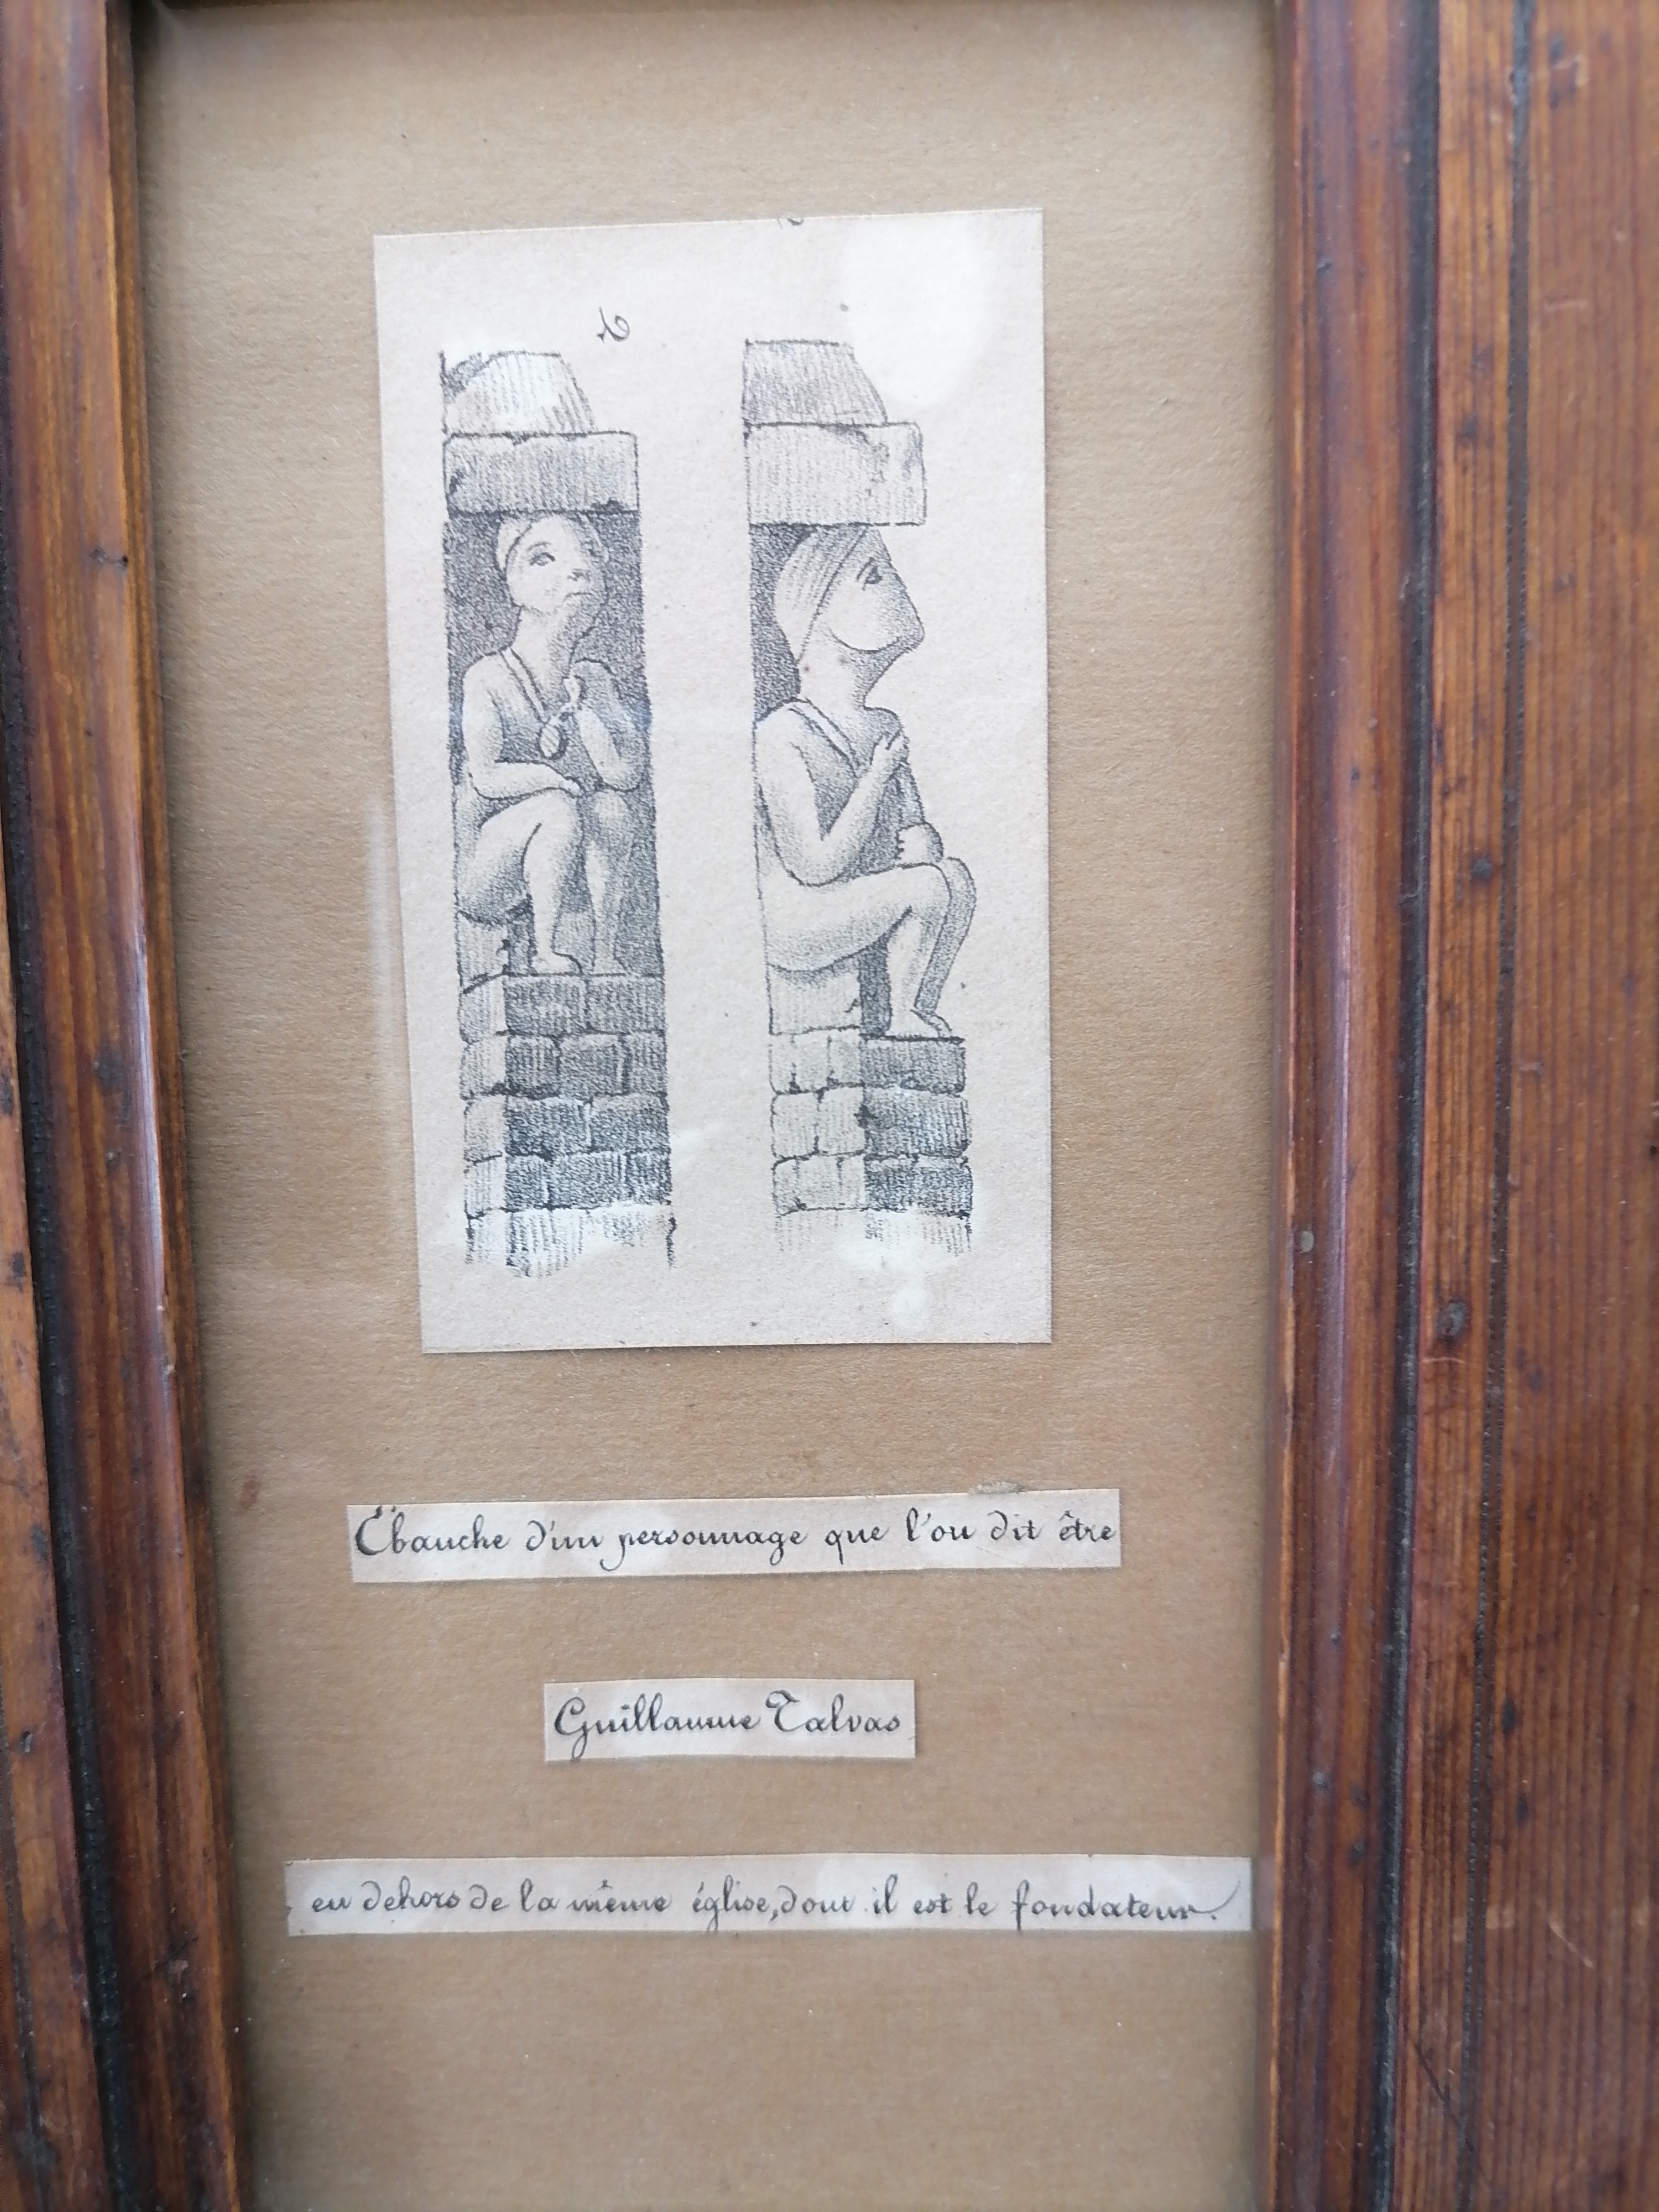 Ébauche d'un personnage que l'on dit être
Guillaume Talvas
en dehors de la même église, dont il est le fondateur.